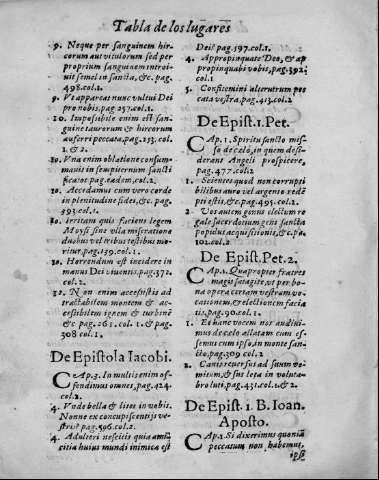 Tabla de los lugares
9. Neque per sanguinem hir-
corum aut vitulorum sed per
proprium sanguinem introi-
uit semel in sancta, &c. pag.
498.col.1.
9. Vt appareat nunc vultui Dei
pro nobis, pag. 257.col.1.
10. Impossibile enim est san-
guine taurorum & hircorum
auferri peccata, pag. 253. col.
1. & 2.
10. Vna enim oblatione consum-
mauit in sempiternum sancti
ficatos pag. eadem, col.2.
10. Accedamus cum vero corde
in plenitudine fidei, &c. pag.
393.col.1.
10. Irritam quis faciens legem
Moysi sine vlla miseratione
duobus vel tribus testibus mo-
ritur, pag. 139.col.1.
10. Horrendum est incidere in
manus Dei viuentis, pag. 372.
col.2.
12. Non enim accessistis ad
tractabilem montem & ac-
cessibilem ignem & turbinē
&c pag. 261. col. 1. & pag.
308 col.1.
De Epistola Iacobi.
CAp.3. In multis enim of-
fendimus omnes, pag. 424.
col.2.
4. Vnde bella & lites in vobis.
Nonne ex concupiscentijs ve-
stris? pag. 506.col.2.
4. Adulteri nescitis quia ami-
citia huius mundi inimica est
Dei? pag. 197.col.1.
4. Appropinquate Deo, & ap
propinquabit vobis, pag. 392.
col.1
5. Confitemini alterutrum pec
cata vestra, pag. 413.col.2
De Epist. 1. Pet.
CAp.1. Spiritu sancto mis-
so de cęlo, in quem desi-
derant Angeli prospicere,
pag. 477.col.2
1. Scientes quod non corrupti
bilibus auro vel argento redē
pti estis, &c. pag. 495. col.2.
2 Vos autem genus electum re
gale sacerdotium gens sancta
populus acquisitionis, &c. pa.
102.col.2
De Epist. Pet. 2.
CAp.1. Quapropter fratres
magis satagite, vt per bo-
na opera certam vestram vo-
cationem, & electionem facia
tis, pag. 90.col.1.
1. Et hanc vocem nos audiui-
mus de cęlo allatam cum es-
semus cum ipso, in monte san-
cto, pag. 309.col.2
2. Canis reuersus ad suum vo-
mitum, & sus lota in voluta-
bro luti, pag. 431.col.1. & 2.
De Epist. 1. B. Ioan.
Aposto.
CAp.1 Si dixerimus quoniā
peccatum non habemus,
ipsi